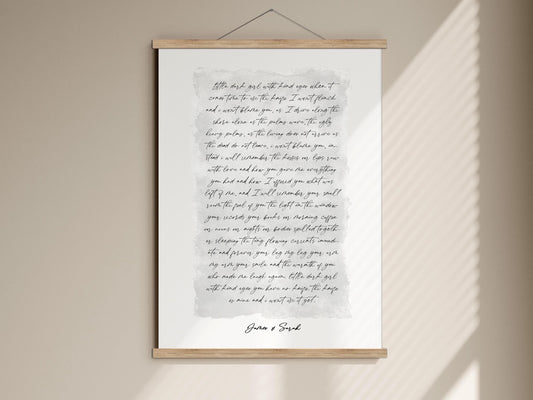 Little dark girl with kind eyes when it
comes time to use the knife I won't flinch
and i won't blame you, as I drive along the
shore alone as the palms wave, the ugly
heavy palms, as the living does not arrive as
the dead do not leave, i won't blame you, in
stead i will remember the kisses our lips raw
with love and how you gave me everything
you had and how I offered you what was
left of me, and I will remember your small
room the feel of you the light in the window
your records your books our morning coffee
our noons our nights our bodies spilled togeth
er sleeping the tiny flowing currents immedi
ate and forever your leg my leg your arm
my arm your smile and the warmth of you
who made me laugh again. little dark girl
with kind eyes you have no knife. the knife
is mine and i won't use it yet.
James & Sarah